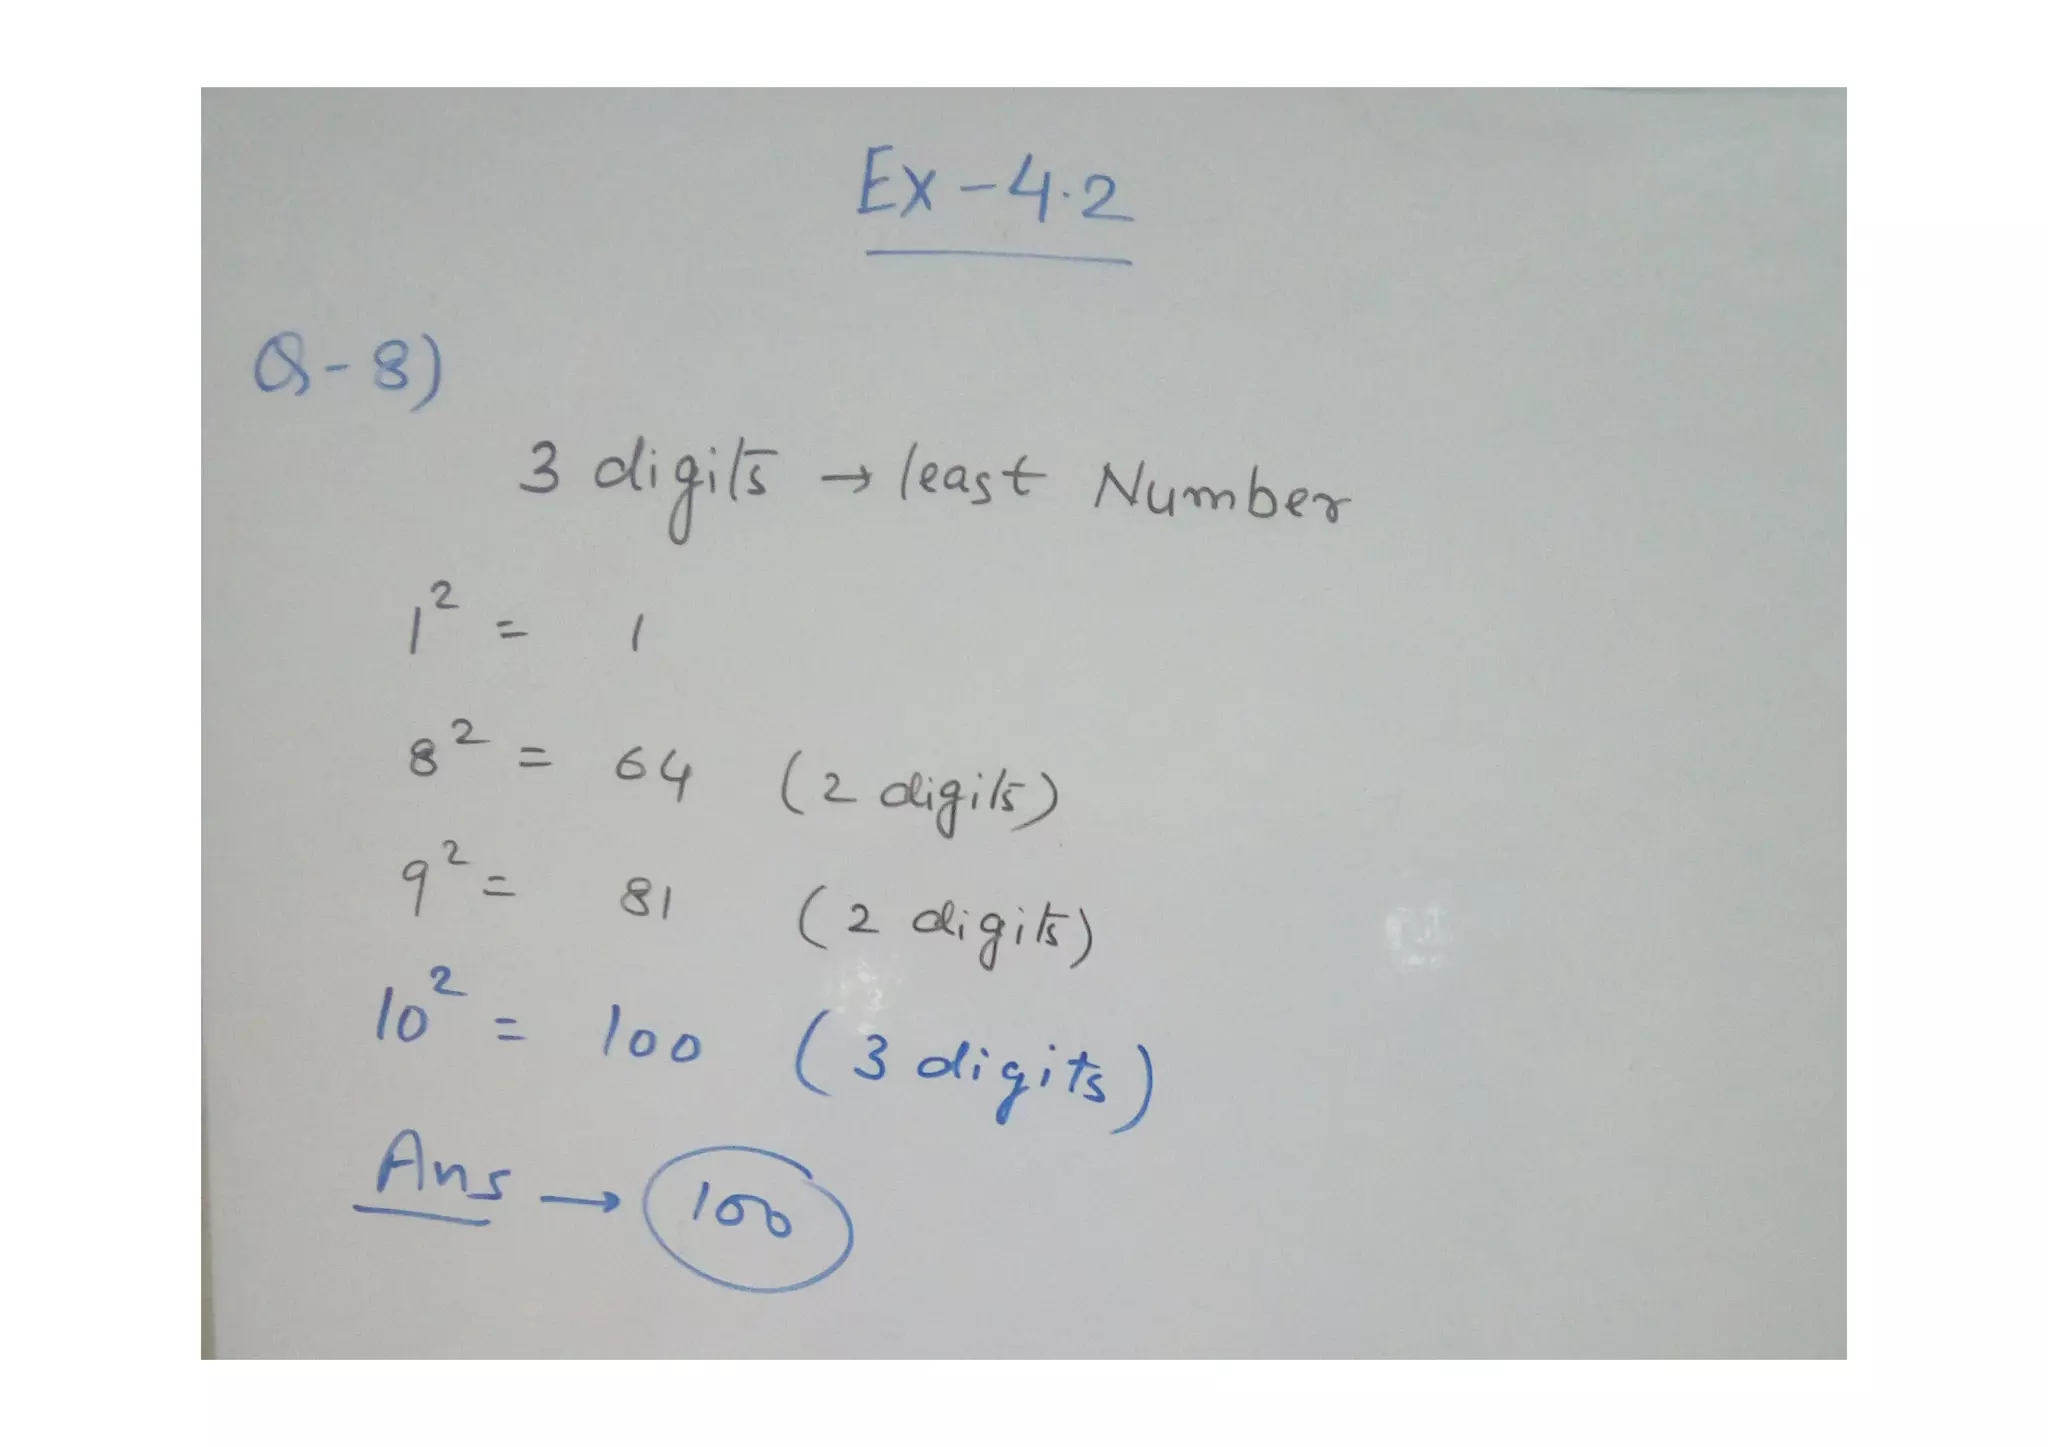 Ex-4.2
Q-8)
3 digits → least Number
1² = 1
8² = 64 (2 digits)
9² = 81 (2 digits)
10² = 100 (3 digits)
Ans → 100